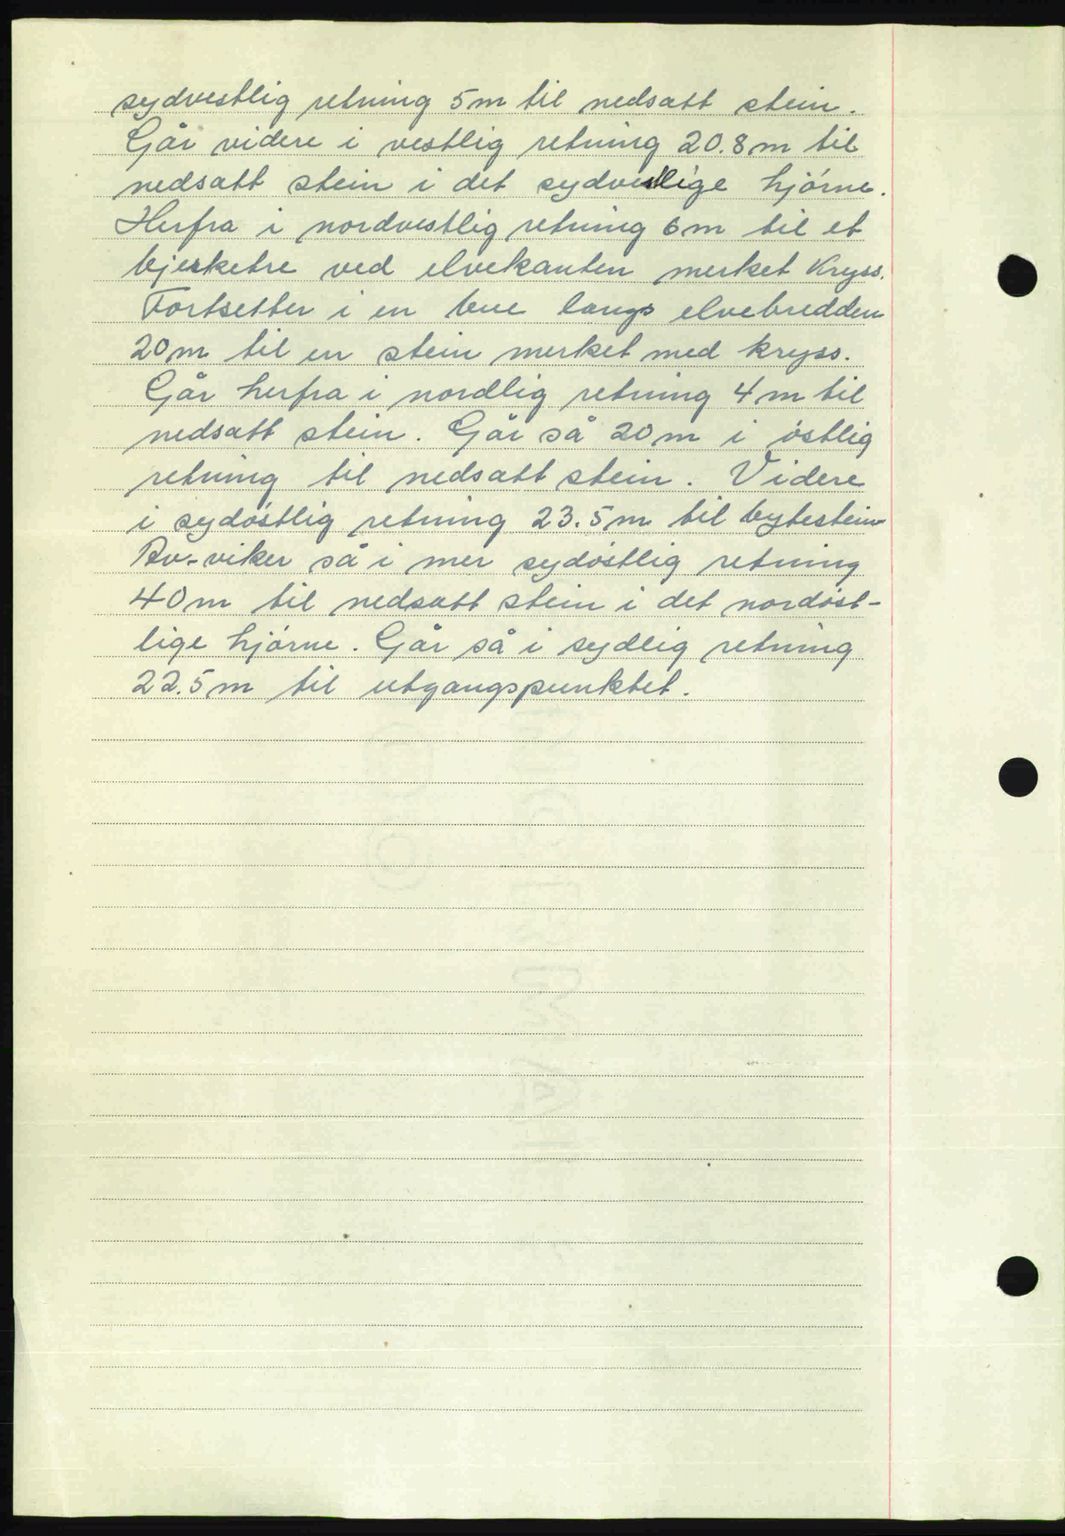 sydvestlig retning 5 m til nedsatt stein.
Går videre i vestlig retning 20.8 m til
nedsatt stein i det sydvestlige hjörne.
Herfra i nordvestlig retning 6 m til et
bjerketre ved elvekanten merket Kryss.
Fortsetter i en bue langs elvebredden
20 m til en stein merket med kryss.
Går herfra i nordlig retning 4 m til
nedsatt stein. Går så 20 m i östlig
retning til nedsatt stein. Videre
i sydöstlig retning 23.5 m til bytestein
Av-viker så i mer sydöstlig retning
40 m til nedsatt stein i det nordöst-
lige hjörne. Går så i sydlig retning
22.5 m til utgangspunktet.